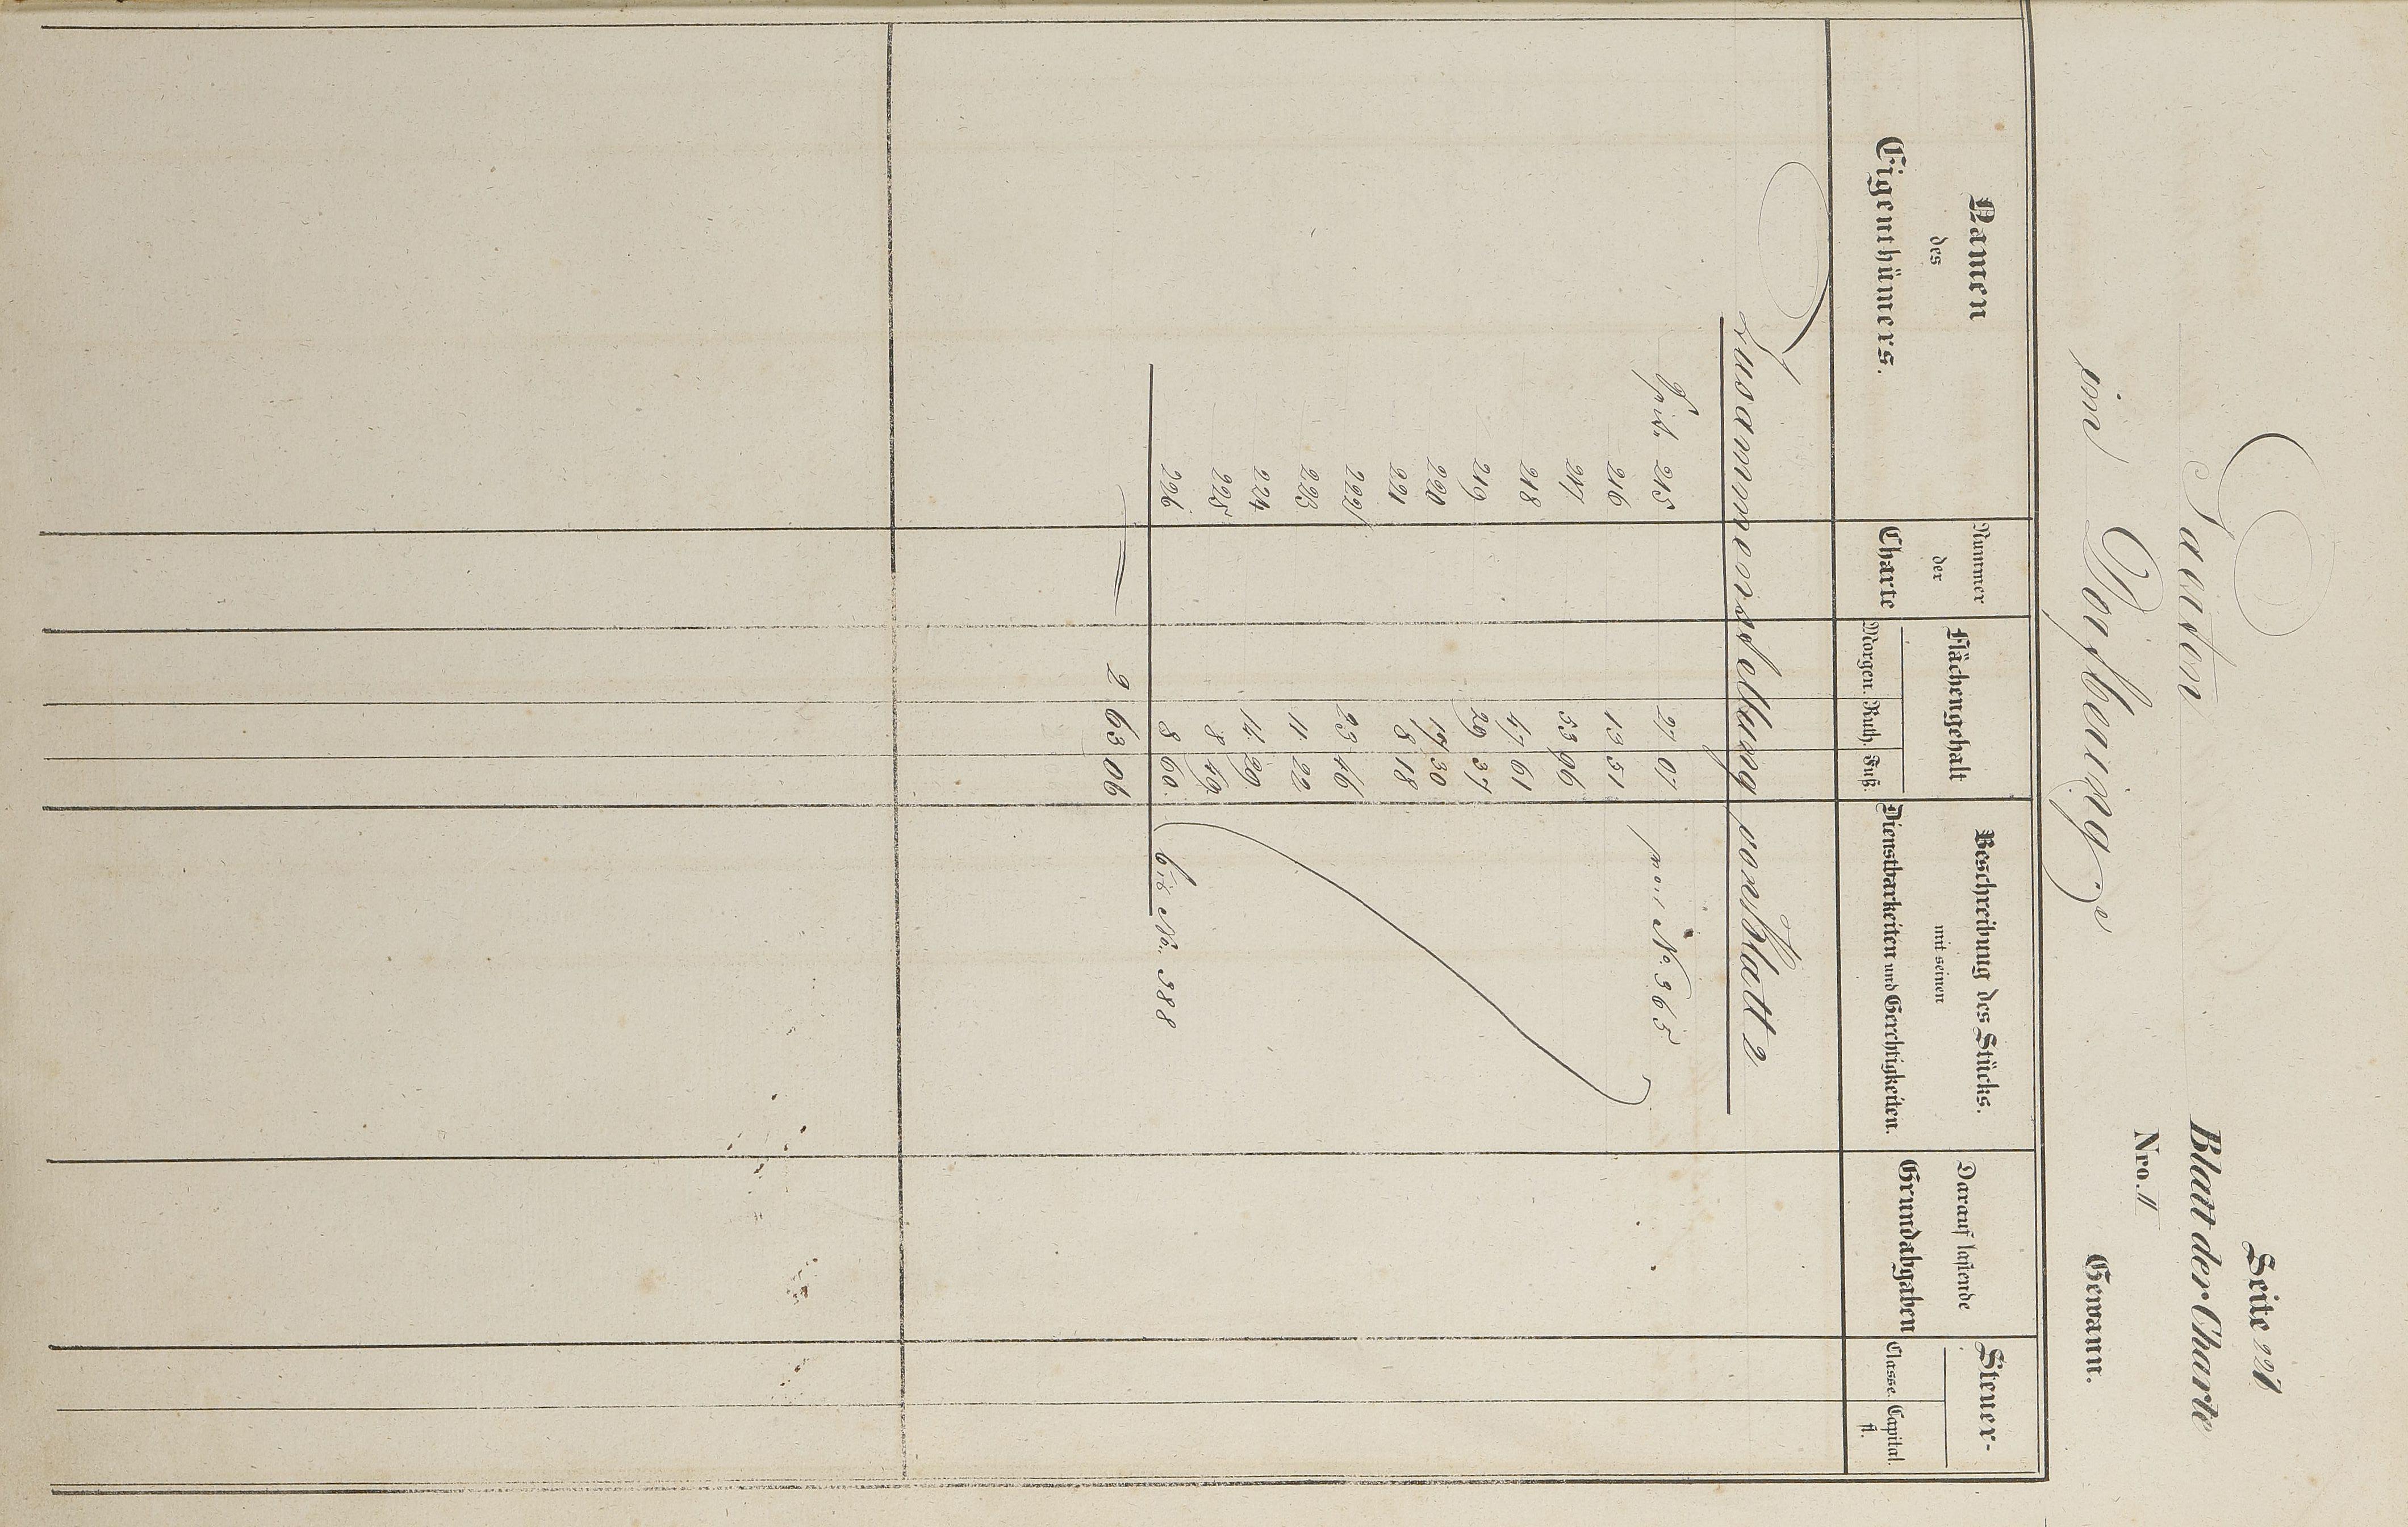 Seite 221
Garten Blatt der Charte
Nro. II
im Dorfbering Gewann.
Namen des Eigenthümers.
Nummer der Charte
Flächengehalt
Morgen. Ruth. Fuß.
Beschreibung des Stücks.
mit seinen
Dienstbarkeiten und Gerechtigkeiten.
Darauf lastende
Grundabgaben
Steuer-
Classe. Capital.
fl.
Zusammenstellung von Blatt 2
Seit. 215 27 07 von No. 365
216 13 51
217 53 96
218 47 61
219 29 37
220 17 30
221 8 18
222 23 46
223 11 22
224 14 29
225 8 49
226 8 60 bis No. 388
2 63 06